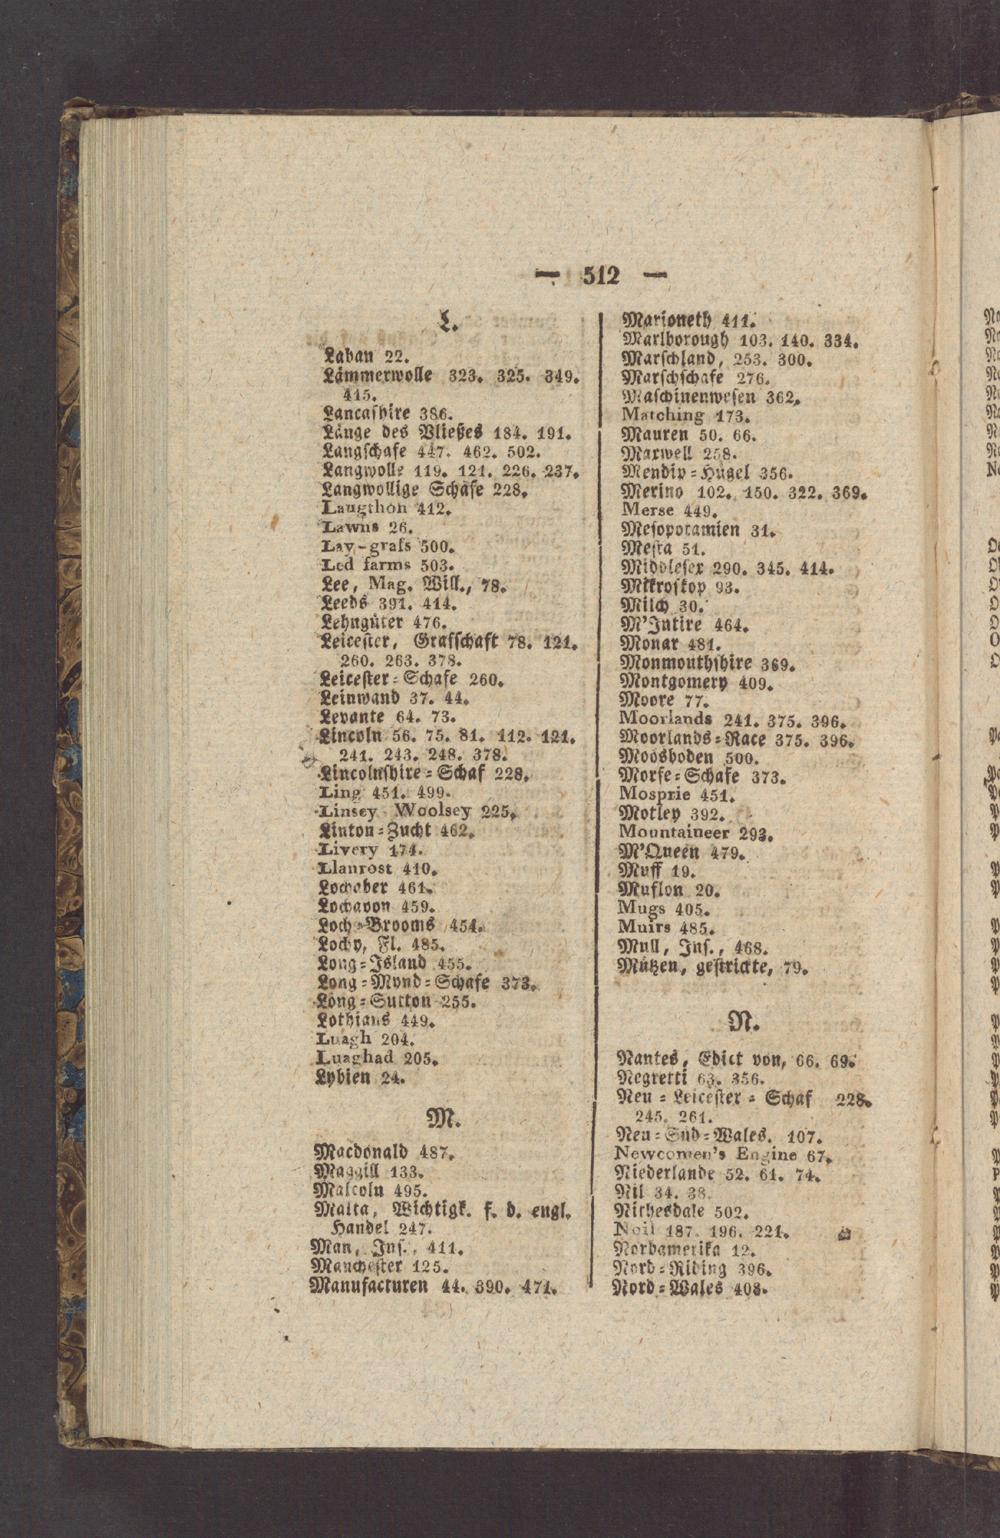 — 512 —
L.
Laban 22.
Lämmerwolle 323. 325. 349.
415.
Lancashire 386.
Länge des Vließes 184. 191.
Langschafe 447. 462. 502.
Langwolle 119. 121. 226. 237.
Langwollige Schafe 228.
Laugthon 412.
Lawns 26.
Lay-grass 500.
Led farms 503.
Lee, Mag. Will., 78.
Leeds 391. 414.
Lehngüter 476.
Leicester, Grafschaft 78. 121.
260. 263. 378.
Leicester-Schafe 260.
Leinwand 37. 44.
Levante 64. 73.
Lincoln 56. 75. 81. 112. 121.
241. 243. 248. 378.
Lincolnshire-Schaf 228.
Ling 451. 499.
Linsey Woolsey 225.
Linton-Zucht 462.
Livery 174.
Llanrost 410.
Lochaber 461.
Lochavon 459.
Loch-Brooms 454.
Lochy, Fl. 485.
Long-Island 455.
Long-Mynd-Schafe 373.
Long-Sutton 255.
Lothians 449.
Luagh 204.
Luaghad 205.
Lybien 24.
M.
Macdonald 487.
Maggill 133.
Malcoln 495.
Malta, Wichtigk. f. d. engl.
Handel 247.
Man, Ins., 411.
Manchester 125.
Manufacturen 44. 390. 471.
Marioneth 411.
Marlborough 103. 140. 334.
Marschland, 253. 300.
Marschschafe 276.
Maschinenwesen 362.
Matching 173.
Mauren 50. 66.
Maxwell 258.
Mendip-Hügel 356.
Merino 102. 150. 322. 369.
Merse 449.
Mesopotamien 31.
Mesta 51.
Middlesex 290. 345. 414.
Mikroskop 93.
Milch 30.
M'Intire 464.
Monar 481.
Monmouthshire 369.
Montgomery 409.
Moore 77.
Moorlands 241. 375. 396.
Moorlands-Race 375. 396.
Moosboden 500.
Morfe-Schafe 373.
Mosprie 451.
Motley 392.
Mountaineer 293.
M'Queen 479.
Muff 19.
Muflon 20.
Mugs 405.
Muirs 485.
Mull, Ins., 468.
Mützen, gestrickte, 79.
N.
Nantes, Edict von, 66. 69.
Negretti 63. 356.
Neu-Leicester-Schaf 228.
245. 261.
Neu-Süd-Wales. 107.
Newcomen's Engine 67.
Niederlande 52. 61. 74.
Nil 34. 38.
Nithesdale 502.
Noil 187. 196. 221.
Nordamerika 12.
Nord-Riding 396.
Nord-Wales 408.